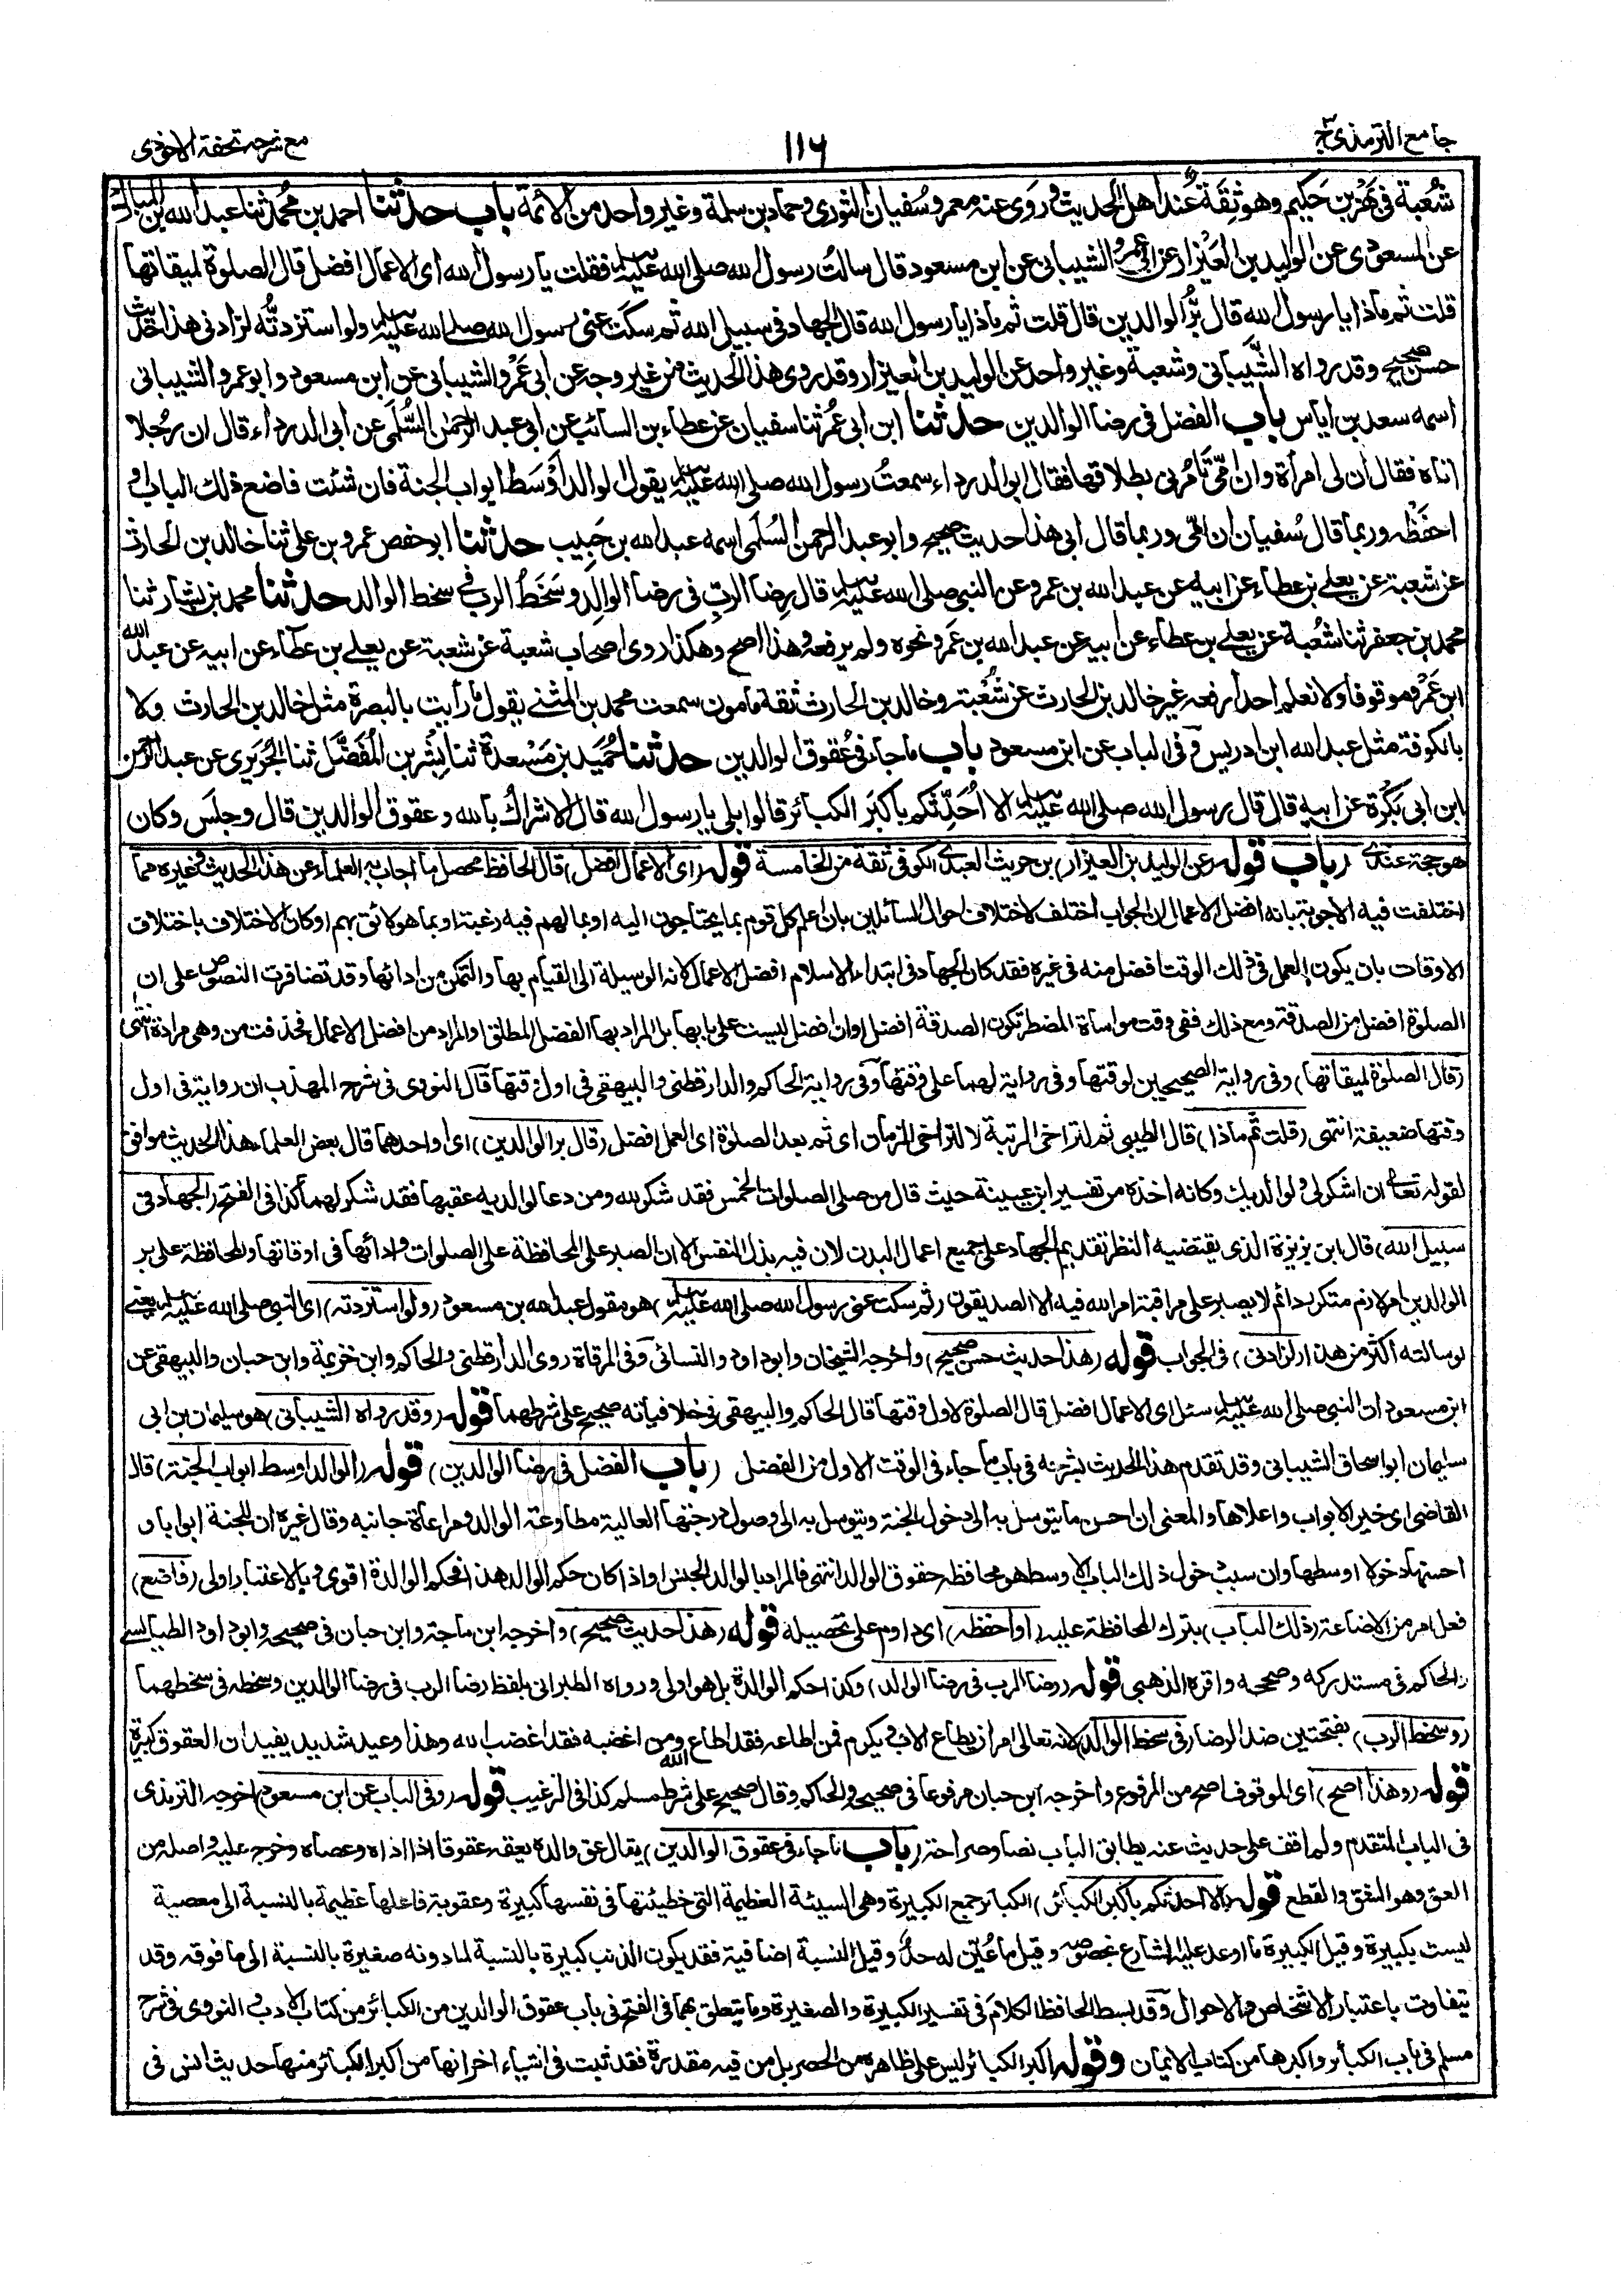 جامع الترمذی ج
۱۱۶
مع شرحه تحفة الاحوذی
شُعبة فی بَهْز بن حَکیم وهو ثِقَة عند اهل الحدیث وروی عنه معمر وسُفیان الثوری وحماد بن سلمة وغیر واحد من الائمة باب حدثنا احمد بن محمد ثنا عبد الله بن المبارك
عن المسعودی عن الولید بن العَیْزار عن ابی عمرو الشیبانی عن ابن مسعود قال سالتُ رسول الله صلی الله علیه وسلم فقلت یا رسول الله ای الاعمال افضل قال الصلوة لمیقاتها
قلت ثم ماذا یا رسول الله قال بِرُّ الوالدین قال قلت ثم ماذا یا رسول الله قال الجهاد فی سبیل الله ثم سکت عنی رسول الله صلے الله علیه وسلم ولو استزدتُّه لزادنی هذا حدیث
حسن صحیح وقد رواه الشَّیبانی وشعبة وغیر واحد عن الولید بن العیزار وقد روی هذا الحدیث من غیر وجه عن ابی عَمْرو الشیبانی عن ابن مسعود وابو عمرو الشیبانی
اسمه سعد بن ایاس باب الفضل فی رضا الوالدین حدثنا ابن ابی عُمر ثنا سفیان عن عطاء بن السائب عن ابی عبد الرحمن السُّلَمی عن ابی الدرداء قال ان رجُلا
اتاه فقال ان لی امرأة وان امّی تَامُرنی بطلاقها فقال ابو الدرداء سمعتُ رسول الله صلی الله علیه وسلم یقول الوالد اَوْسَط ابواب الجنة فان شئت فاضع ذلك الباب او
احفَظْه وربما قال سُفیان ان امّی وربما قال ابی هذا حدیث صحیح وابو عبد الرحمن السُلَمی اسمه عبد الله بن حَبِیب حدثنا ابو حفص عمرو بن علی ثنا خالد بن الحارث
عن شعبة عن یعلے بن عطاء عن ابیه عن عبد الله بن عمرو عن النبی صلی الله علیه وسلم قال رِضَا الربّ فی رضا الوالِد وسَخَطُ الرب فے سخط الوالد حدثنا محمد بن بشار ثنا
محمد بن جعفر ثنا شُعبة عن یعلے بن عطاء عن ابیه عن عبد الله بن عَمرو نحوه ولم یرفعه وهذا اصح وهکذا روی اصحاب شعبة عن شعبة عن یعلے بن عطاء عن ابیه عن عبد الله
ابن عَمْرو موقوفا ولا نعلم احدا رفعه غیر خالد بن الحارث عن شُعْبة وخالد بن الحارث ثقة مامون سمعت محمد بن المثنے یقول ما رأیت بالبصرة مثل خالد بن الحارث ولا
بالکوفة مثل عبد الله ابن ادریس وفی الباب عن ابن مسعود باب ما جاء فی عُقوق الوالدین حدثنا حُمَید بن مَسْعدة ثنا بِشْر بن المُفَضَّل ثنا الجُرَیری عن عبد الرحمن
ابن ابی بَکْرَة عن ابیه قال قال رسول الله صلی الله علیه وسلم الا اُحَدِّثُکم باَکبَر الکبائر قالوا بلی یا رسول الله قال الاشراك بالله وعقوق الوالدین قال وجلَس وکان
هو حجة عندی (باب) قوله (عن الولید بن العیزار) بن حریث العبدی الکوفی ثقة من الخامسة قوله (ای الاعمال افضل) قال الحافظ محصل ما اجاب به العلماء عن هذا الحدیث وغیره مما
اختلفت فیه الاجوبة بانه افضل الاعمال ان الجواب اختلف لاختلاف احوال السائلین بان اعلم کل قوم بما یحتاجون الیه او بما لهم فیه رغبة او بما هو لائق بهم او کان الاختلاف باختلاف
الاوقات بان یکون العمل فی ذلك الوقت افضل منه فی غیره فقد کان الجهاد فی ابتداء الاسلام افضل الاعمال لانه الوسیلة الی القیام بها والتمکن من ادائها وقد تضافرت النصوص علی ان
الصلوة افضل من الصدقة ومع ذلك ففی وقت مواساة المضطر تکون الصدقة افضل او ان افضل لیست علی بابها بل المراد بها الفضل المطلق او المراد من افضل الاعمال فحذفت من وهی مرادة انتهی
(قال الصلوة لمیقاتها) وفی روایة الصحیحین لوقتها وفی روایة لهما علی وقتها وفی روایة الحاکم والدارقطنی والبیهقی فی اول وقتها قال النووی فی شرح المهذب ان روایة فی اول
وقتها ضعیفة انتهی (قلت ثم ماذا) قال الطیبی ثم لتراخی الرتبة لا لتراخی الزمان ای ثم بعد الصلوة ای العمل افضل (قال بر الوالدین) ای او احدهما قال بعض العلماء هذا الحدیث موافق
لقوله تعالی ان اشکر لی ولوالدیك وکانه اخذه من تفسیر ابن عیینة حیث قال من صلی الصلوات الخمس فقد شکر لله ومن دعا لوالدیه عقبها فقد شکر لهما کذا فی الفتح (الجهاد فی
سبیل الله) قال ابن بزیزة الذی یقتضیه النظر تقدیم الجهاد علی جمیع اعمال البدن لان فیه بذل النفس الا ان الصبر علی المحافظة علی الصلوات وادائها فی اوقاتها والمحافظة علی بر
الوالدین امر لازم متکرر دائم لا یصبر علی مراقبة امر الله فیه الا الصدیقون (ثم سکت عنی رسول الله صلی الله علیه وسلم) هو مقول عبد الله بن مسعود (ولو استزدته) ای النبی صلی الله علیه وسلم یعنی
لو سالته اکثر من هذا (لزادنی) فی الجواب قوله (هذا حدیث حسن صحیح) واخرجه الشیخان وابو داود والنسائی وفی المرقاة روی الدارقطنی والحاکم وابن خزیمة وابن حبان والبیهقی عن
ابن مسعود ان النبی صلی الله علیه وسلم سئل ای الاعمال افضل قال الصلوة لاول وقتها قال الحاکم والبیهقی فی خلافیاته صحیح علی شرطهما قوله (وقد رواه الشیبانی) هو سلیمان بن ابی
سلیمان ابو اسحاق الشیبانی وقد تقدم هذا الحدیث بشرحه فی باب ما جاء فی الوقت الاول من الفضل (باب الفضل فی رضا الوالدین) قوله (الوالد اوسط ابواب الجنة) قال
القاضی ای خیر الابواب واعلاها والمعنی ان احسن ما یتوسل به الی دخول الجنة ویتوسل به الی وصول درجتها العالیة مطاوعة الوالد ومراعاة جانبه وقال غیره ان للجنة ابوابا و
احسنها دخولا اوسطها وان سبب دخول ذلك الباب الاوسط هو محافظة حقوق الوالد انتهی فالمراد بالوالد الجنس او اذا کان حکم الوالد هذا فحکم الوالدة اقوی وبالاعتبار اولی (فاضع)
فعل امر من الاضاعة (ذلك الباب) بترك المحافظة علیه (او احفظه) ای داوم علی تحصیله قوله (هذا حدیث صحیح) واخرجه ابن ماجة وابن حبان فی صحیحه وابو داود الطیالسے
والحاکم فی مستدرکه وصححه واقره الذهبی قوله (رضا الرب فی رضا الوالد) وکذا حکم الوالدة بل هو اولی ورواه الطبرانی بلفظ رضا الرب فی رضا الوالدین وسخطه فی سخطهما
(وسخط الرب) بفتحتین ضد الرضا (فی سخط الوالد) لانه تعالی امر ان یطاع الاب ویکرم فمن اطاعه فقد اطاع الله ومن اغضبه فقد اغضب الله وهذا وعید شدید یفید ان العقوق کبیرة
قوله (وهذا اصح) ای الموقوف اصح من المرفوع واخرجه ابن حبان مرفوعا فی صحیحه والحاکم وقال صحیح علی شرط مسلم کذا فی الترغیب قوله (وفی الباب عن ابن مسعود) اخرجه الترمذی
فی الباب المتقدم ولم اقف علی حدیث عنه یطابق الباب نصا وصراحة (باب ما جاء فی عقوق الوالدین) یقال عق والده یعقه عقوقا اذا اذاه وعصاه وخرج علیه واصله من
العق وهو الشق والقطع قوله (الا احدثکم باکبر الکبائر) الکبائر جمع الکبیرة وهی السیئة العظیمة التی خطیئتها فی نفسها کبیرة وعقوبة فاعلها عظیمة بالنسبة الی معصیة
لیست بکبیرة وقیل الکبیرة ما اوعد علیه الشارع بخصوصه وقیل ما عُیّن له حدٌّ وقیل النسبة اضافیة فقد یکون الذنب کبیرة بالنسبة لما دونه صغیرة بالنسبة الی ما فوقه وقد
یتفاوت باعتبار الاشخاص والاحوال وقد بسط الحافظ الکلام فی تفسیر الکبیرة والصغیرة وما یتعلق بهما فی الفتح فی باب عقوق الوالدین من الکبائر من کتاب الادب والنووی فی شرح
مسلم فی باب الکبائر واکبرها من کتاب الایمان وقوله اکبر الکبائر لیس علی ظاهره من الحصر بل من فیه مقدرة فقد ثبت فی اشیاء اخر انها من اکبر الکبائر منها حدیث انس فی